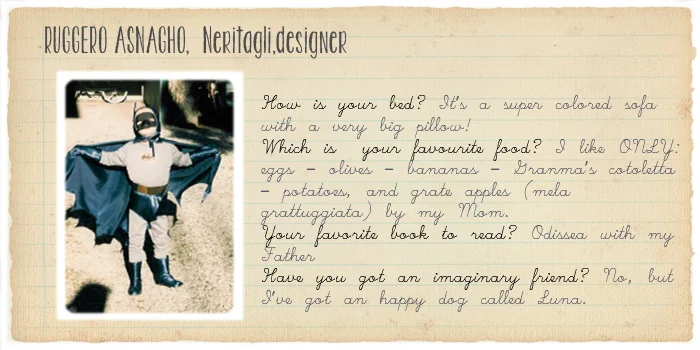 RUGGERO ASNAGHO, Neritagli,designer
How is your bed? It's a super colored sofa
with a very big pillow!
Which is your favourite food? I like ONLY:
eggs - olives - bananas - Granma's cotoletta
- potatoes, and grate apples (mela
grattuggiata) by my Mom.
Your favorite book to read? Odissea with my
Father
Have you got an imaginary friend? No, but
I've got an happy dog called Luna.